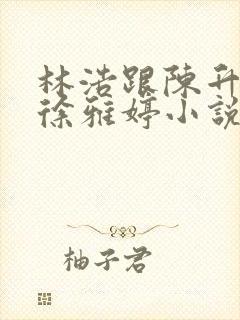 林浩跟陳升
徐雅婷小說
柚子君